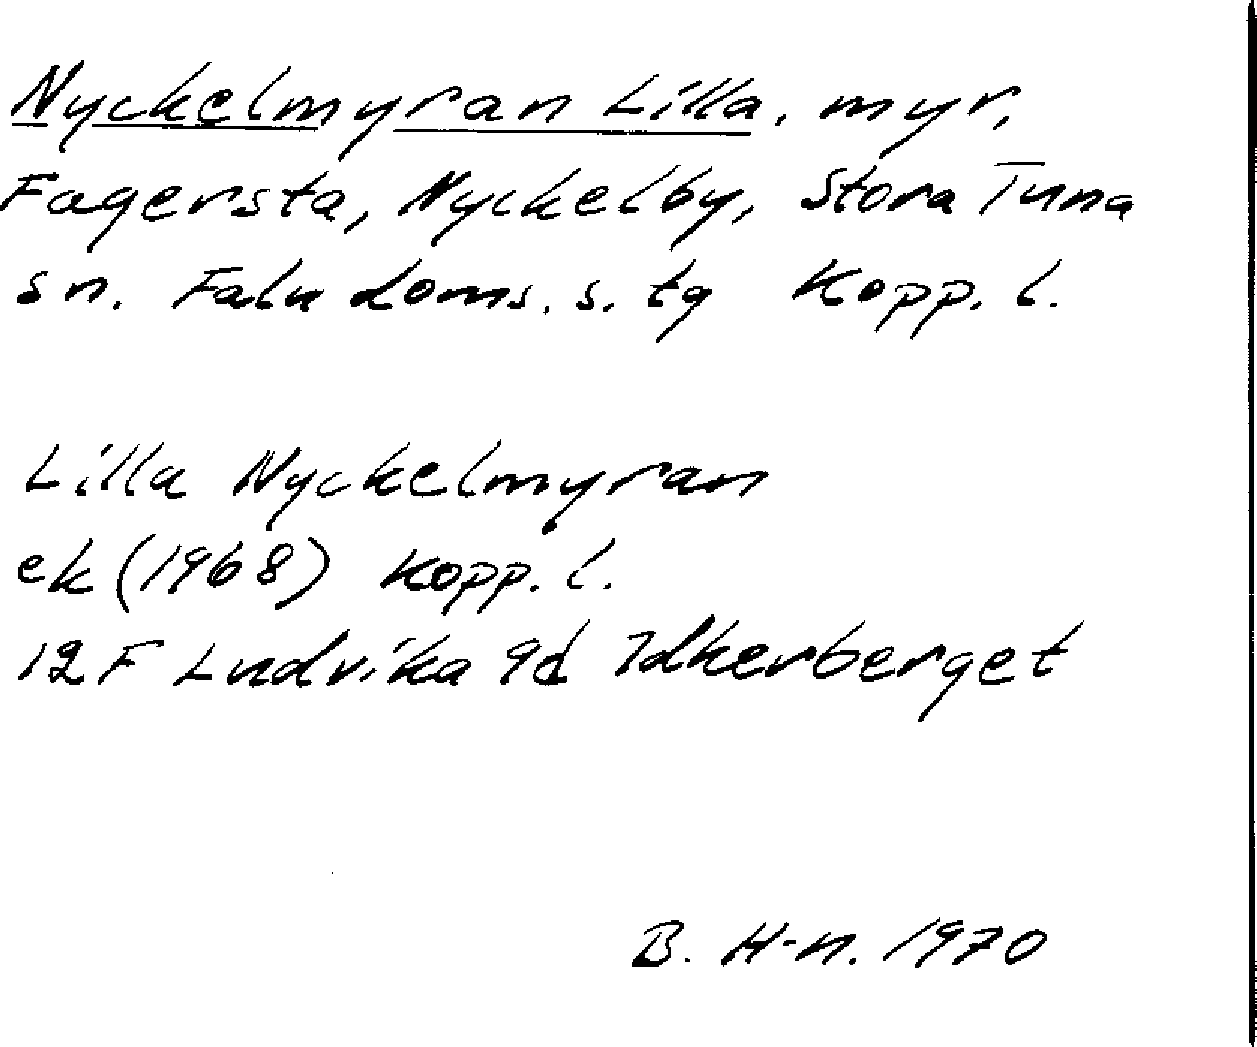 Nyckelmyran Lilla, myr,
Fagersta, Nyckelby, Stora Tuna
sn. Falu doms. s. tg Kopp. l.
Lilla Nyckelmyran
ek (1968) Kopp. l.
12 F Ludvika 9d Idkerberget
B. H-n. 1970